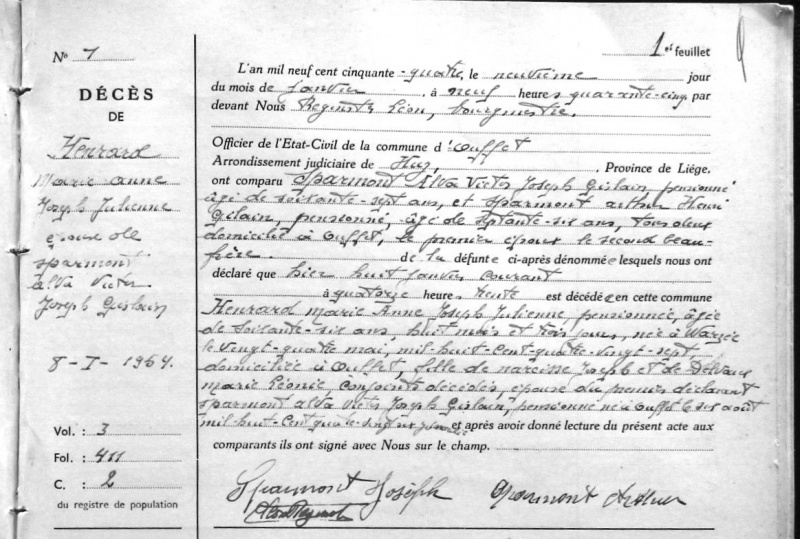 1er feuillet
No 7
DÉCÈS
DE
Henrard
Marie Anne
Joseph Julienne
épouse de
Sparmont
Alva Victor
Joseph Gislain
8-I-1954.
Vol. : 3
Fol. : 411
C. : 2
du registre de population
L'an mil neuf cent cinquante-quatre, le neuvième jour
du mois de janvier, à neuf heures quarante-cinq, par
devant Nous Léon, bourgmestre,
Officier de l'Etat-Civil de la commune d'Ouffet
Arrondissement judiciaire de Huy, Province de Liége.
ont comparu Sparmont Alva Victor Joseph Gislain, pensionné
âgé de soixante-sept ans, et Sparmont Arthur Henri
Gilain, pensionné, âgé de septante-six ans, tous deux
domiciliés à Ouffet, le premier époux le second beau-
frère. de la défunte ci-après dénommée lesquels nous ont
déclaré que hier huit janvier courant
à quatorze heures trente est décédée en cette commune
Henrard Marie Anne Joseph Julienne, pensionnée, âgée
de soixante-six ans, huit mois et trois jours, née à Warzée
le vingt-quatre mai, mil-huit-cent-quatre-vingt-sept,
domiciliée à Ouffet, fille de Narcisse Joseph et de Delvaux
Marie Léonie, conjoints décédés, épouse du premier déclarant
Sparmont Alva Victor Joseph Gislain, pensionné né à Ouffet le six août
mil-huit-cent quatre-vingt-six et après avoir donné lecture du présent acte aux
comparants ils ont signé avec Nous sur le champ.
Sparmont Joseph Sparmont Arthur